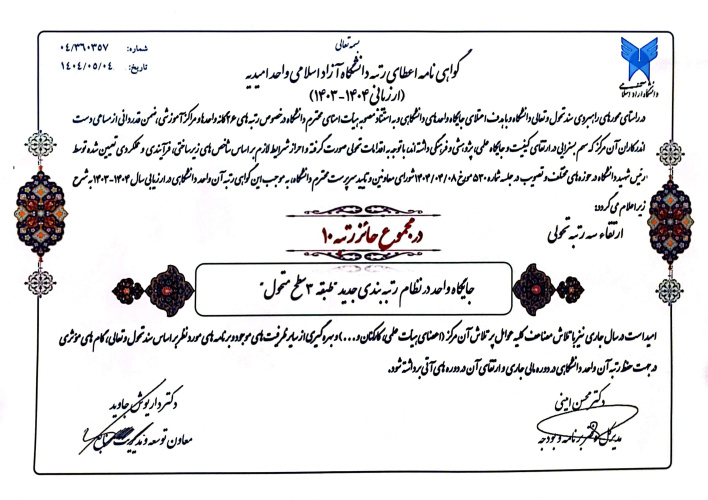 بسمه تعالی
شماره: ۰۴/۳۶۰۳۵۷
تاریخ: ۱۴۰۴/۰۵/۰۴
گواهی نامه اعطای رتبه دانشگاه آزاد اسلامی واحد امیدیه
(ارزیابی ۱۴۰۴-۱۴۰۳)
دانشگاه آزاد اسلامی
در راستای محورهای راهبردی سند تحول و تعالی دانشگاه و با هدف اعتلای جایگاه واحدهای دانشگاهی و به استناد مصوبه هیات امنای محترم دانشگاه در خصوص رتبه های ۲۶ گانه واحدها و مراکز آموزشی، ضمن قدردانی از مساعی دست
اندرکاران آن مرکز که سهم بسزایی در ارتقای کیفیت و جایگاه علمی، پژوهشی و فرهنگی داشته اند، با توجه به اقدامات تحولی صورت گرفته و احراز شرایط لازم بر اساس شاخص های زیرساختی، فرآیندی و عملکردی تعیین شده توسط
رئیس شهید دانشگاه در حوزه های مختلف و تصویب در جلسه شماره ۵۳۰ مورخ ۱۴۰۴/۰۴/۰۸ شورای معاونین و تایید سرپرست محترم دانشگاه، به موجب این گواهی رتبه آن واحد دانشگاهی در ارزیابی سال ۱۴۰۴-۱۴۰۳ به شرح
زیر اعلام می گردد:
ارتقاء سه رتبه تحولی
در مجموع حائز رتبه ۱۰
جایگاه واحد در نظام رتبه بندی جدید "طبقه ۳ سطح متحول"
امید است در سال جاری نیز با تلاش مضاعف کلیه عوامل پر تلاش آن مرکز (اعضای هیات علمی، کارکنان و....) و بهره گیری از سایر ظرفیت های موجود و برنامه های مورد نظر بر اساس سند تحول و تعالی، گام های مؤثری
در جهت حفظ رتبه آن واحد دانشگاهی در دوره مالی جاری و ارتقای آن در دوره های آتی برداشته شود.
دکتر محسن امینی
مدیرکل دفتر برنامه و بودجه
دکتر داریوش جاوید
معاون توسعه و مدیریت منابع